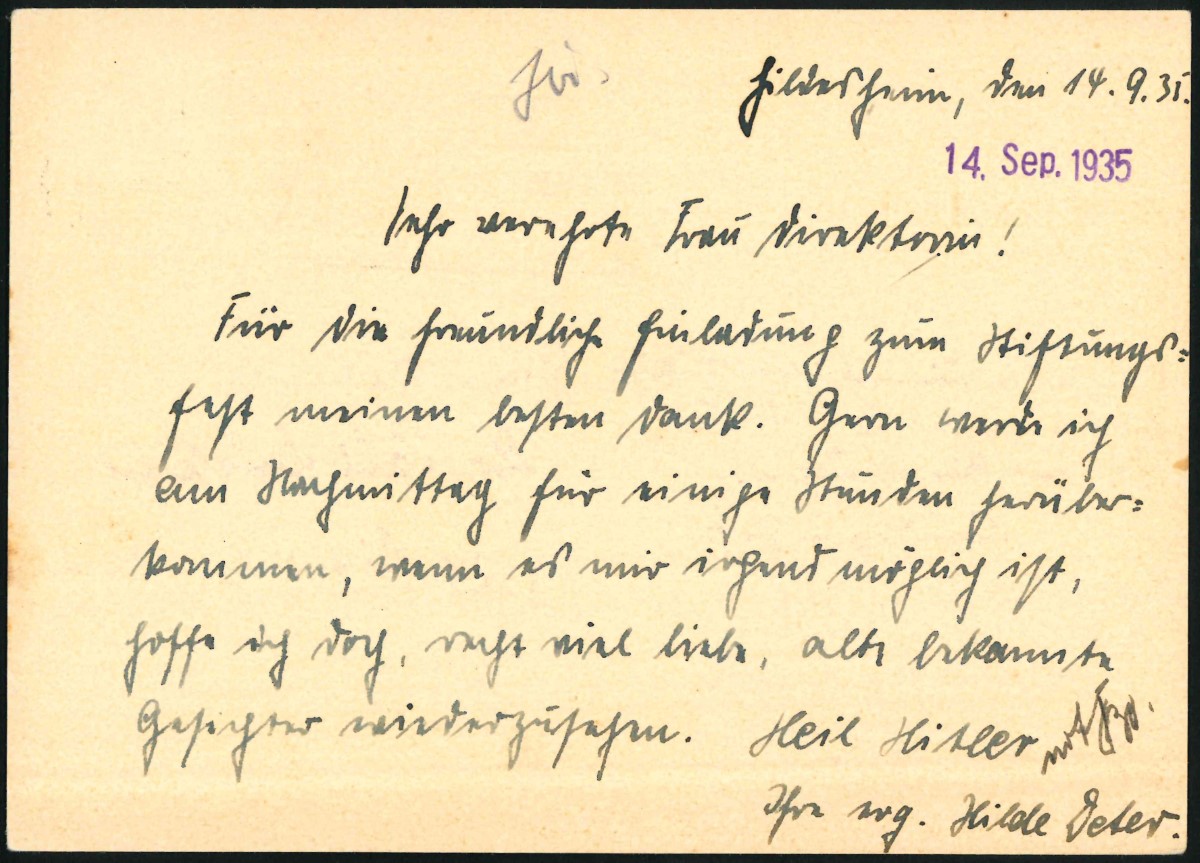 Hildesheim, den 14.9.35.
14. Sep. 1935
Sehr verehrte Frau Direktorin!
Für die freundliche Einladung zum Stiftungs=
fest meinen besten Dank. Gern werde ich
am Nachmittag für einige Stunden herüber=
kommen, wenn es mir irgend möglich ist,
hoffe ich doch, recht viel liebe, alte bekannte
Gesichter wiederzusehen. Heil Hitler
Ihre erg. Hilde Deter.